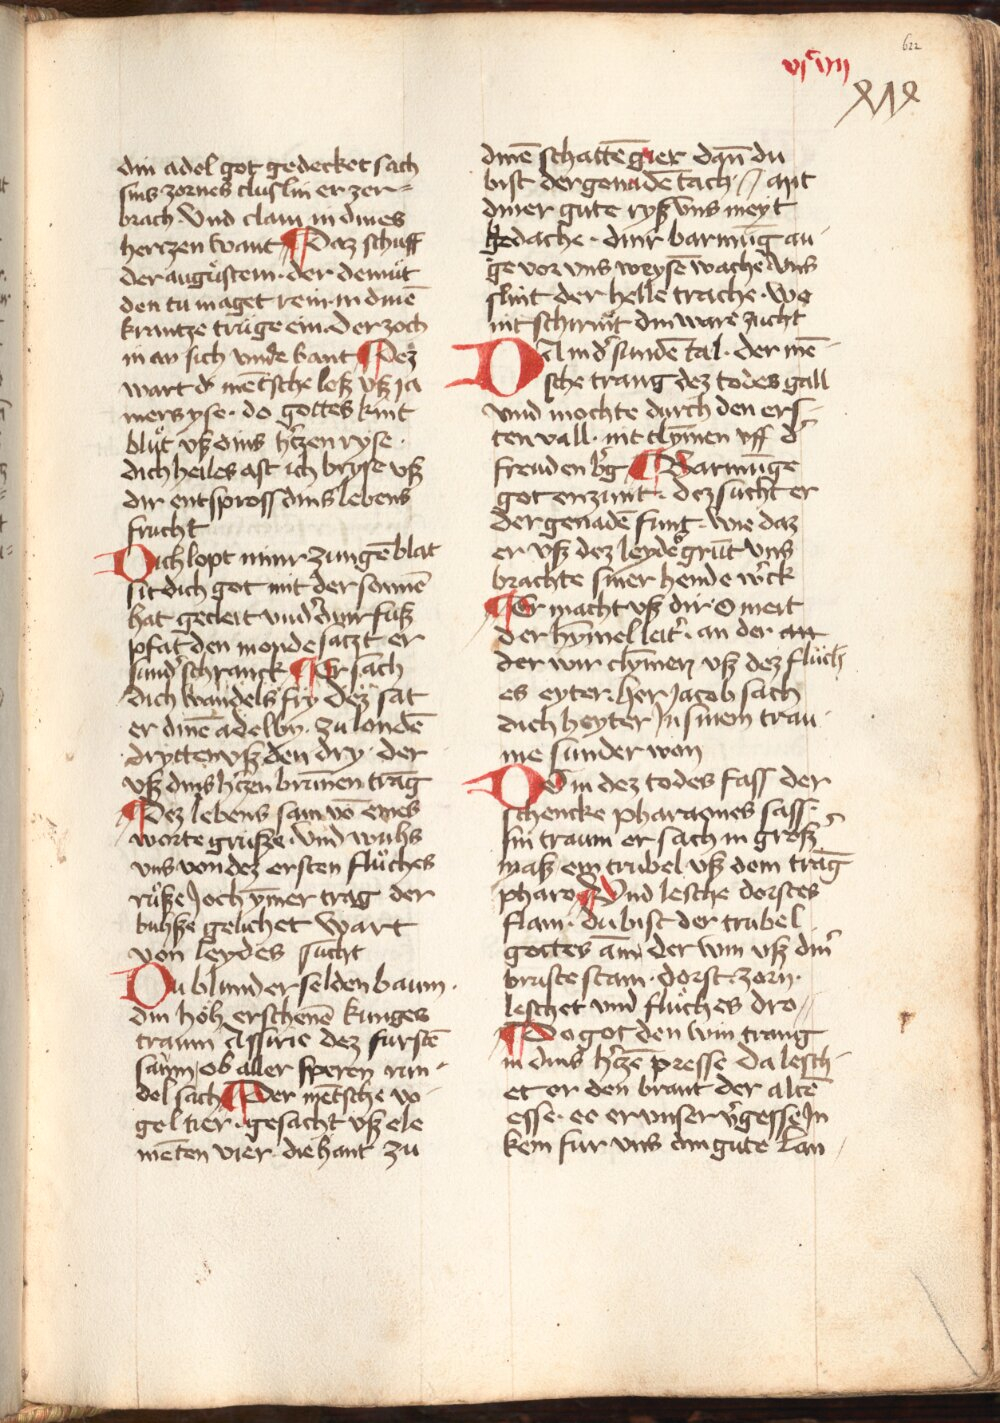 622
vjᶜ viiij
din adel got gedecket sach
sins zornes cluslin er zer=
brach Vnd clam in dines
hertzen want ¶ Daz schuff
der augůstein · der demůt
den tu maget rein · in dinē
krantze trüge ein · Der zoch
in an sich vnde bant ¶ Dez
wart d͛ mēsche loß vß ja
mers yse · do gottes kint
blůt vß dins h͛tzen ryse ·
dich heiles ast ich bryse vß
dir entspross dins lebens
frucht
Dich lopt miner zungē blat
sit dich got mit der sonnē
hat gecleit vnd͛ diner fuß
pfat den monde satzt er
sund͛ schranck ¶ Er sach
dich wandels fry dez sat
er dinē adel by · zu londē
drytten vß den dry · der
vß dins h͛tzen brūnen trāg
¶ Dez lebens sam vō eines
worte gruße · vnd wuhs
vns von dez ersten flůches
růße Joch ȳmer trag der
buhße gelichet wart
von leydes sucht
Du blund er selden baum ·
din hoh erschenē kunges
traum Assirie dez furstē
saům / ob aller speren wan=
del sach ¶ Der mētsche vo
gel tier · gesacht vß ele
mēten vier · die hant zu
dinē schattē gier dan̄ du
bist der genadē tach · // ant
diner gute ryß vns meyt
gedache · diner barmūg au
ge vor vns weysē wache vns
slint der helle trache · wo
nit schirmt din ware zucht
DA in d͛ sundē tal · der mē
sche trang dez todes gall
vnd mochte durch den ers=
ten vall · nit clymen vff d͛
freuden b͛g ¶ Barmūge
got enzunt · dez sucht er
der genadē funt · wie daz
er vß dez leydē grūt vns
brachte siner hende w͛ck
¶ Er macht vß dir · O meit
der hȳmel leit͛ · an der an
der wir clȳmen vß dez flůch
es eyter · her Jacob sach
dich heyter Jn sinem trau
me sunder won
DO in dez todes fass der
schencke pharaones sass ·
Jm traum er sach in groß͛
maß ein trubel vß dem trāg
pharo ¶ Vnd lesche dorstes
flam · du bist der trubel
gottes am̄ der win vß din͛
bruste stam · dorst · zorn ·
leschet vnd fluches dro //
¶ Do got den win trang
in dins h͛tzē presse da lesch=
et er den brant der altē
esse · ee er vnser v͛gesse Jn
kem fur vns din gute lan